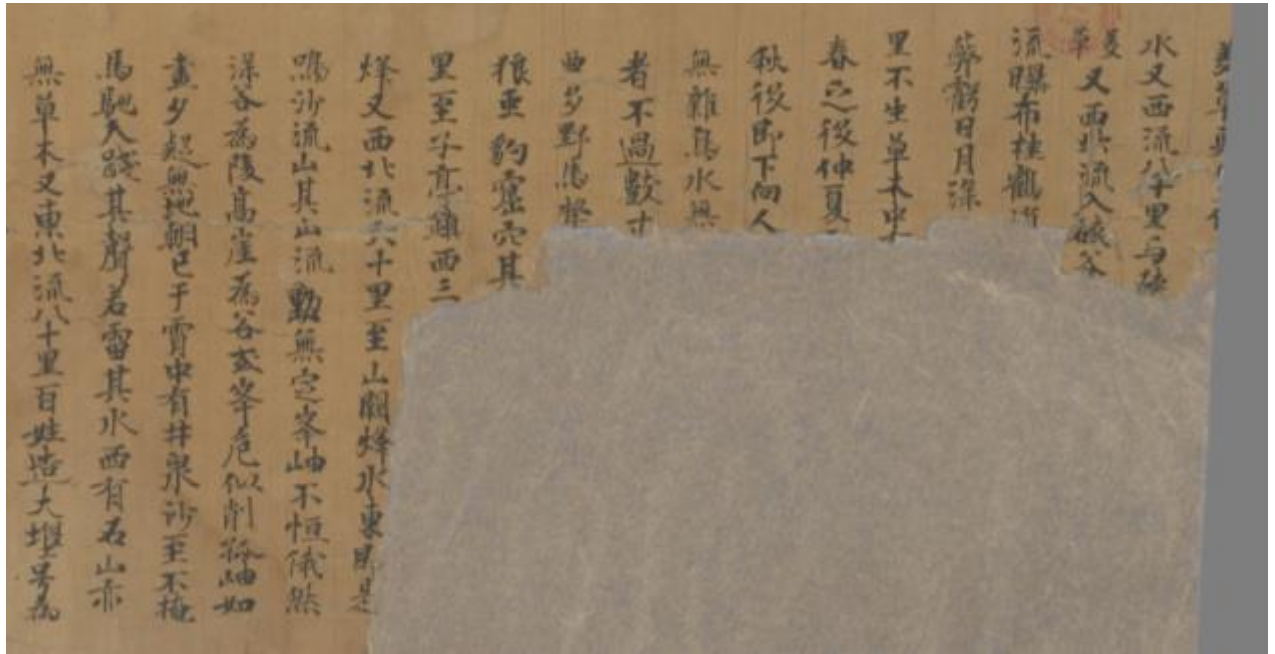 水又西流八十里与
又西北流入硤谷
流曝布桂鶴
蔽虧日月深
里不生草木中
春之後仲夏
秋後即下向人
無雜鳥水無
者不過數寸
曲多野馬犛
狼虫豹窟穴其
里至子亭鎮西三
烽又西北流六十里至山闕烽水東即是
鳴沙流山其山流動無定峯岫不恒俄然
深谷為陵高崖為谷或峯危似削孤岫如
畫夕起無地朝已干霄中有井泉沙至不掩
馬馳人踐其聲若雷其水西有石山亦
無草木又東北流八十里百姓造大堰号為